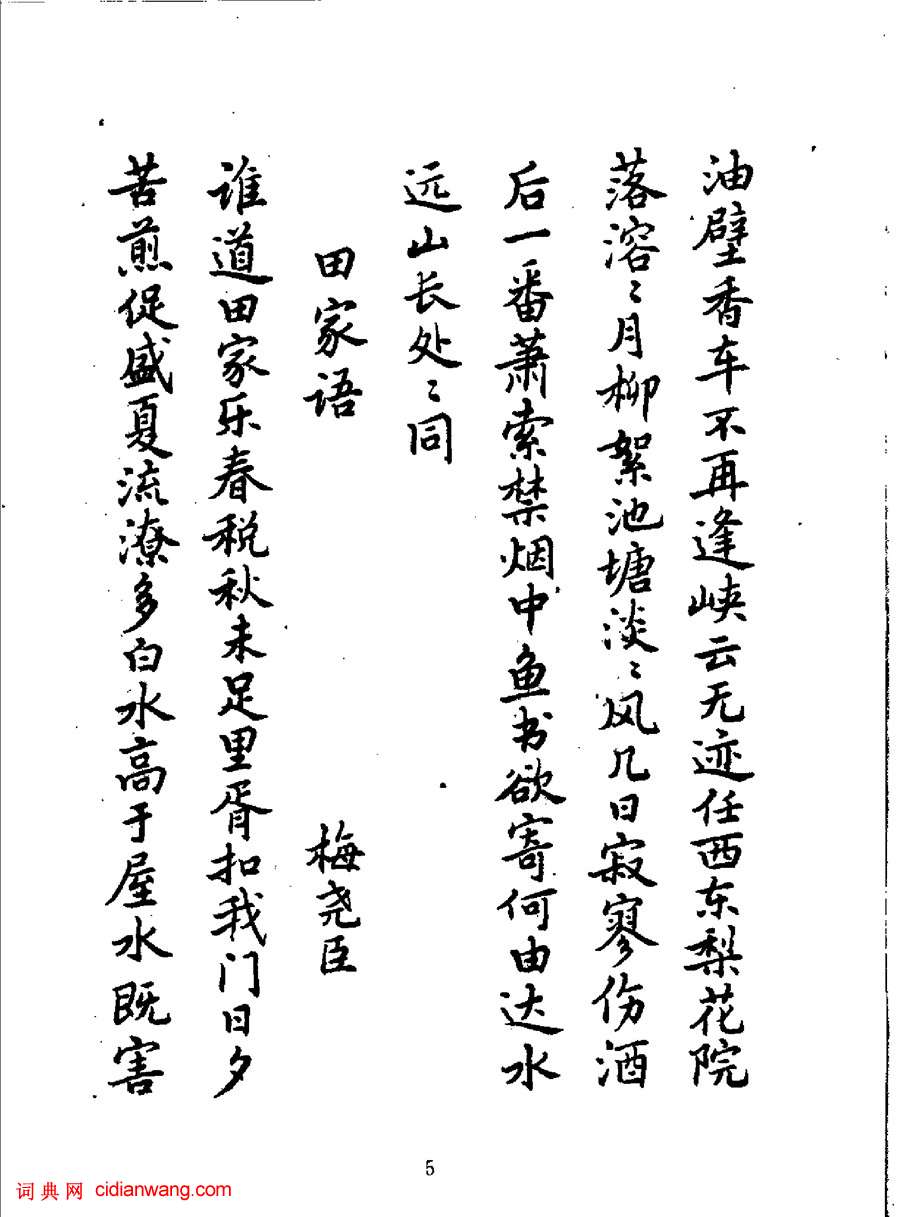 油壁香车不再逢峡云无迹任西东梨花院
落溶〻月柳絮池塘淡〻风几日寂寥伤酒
后一番萧索禁烟中鱼书欲寄何由达水
远山长处〻同
田家语 梅尧臣
谁道田家乐春税秋未足里胥扣我门日夕
苦煎促盛夏流潦多白水高于屋水既害
5
词典网 cidianwang.com